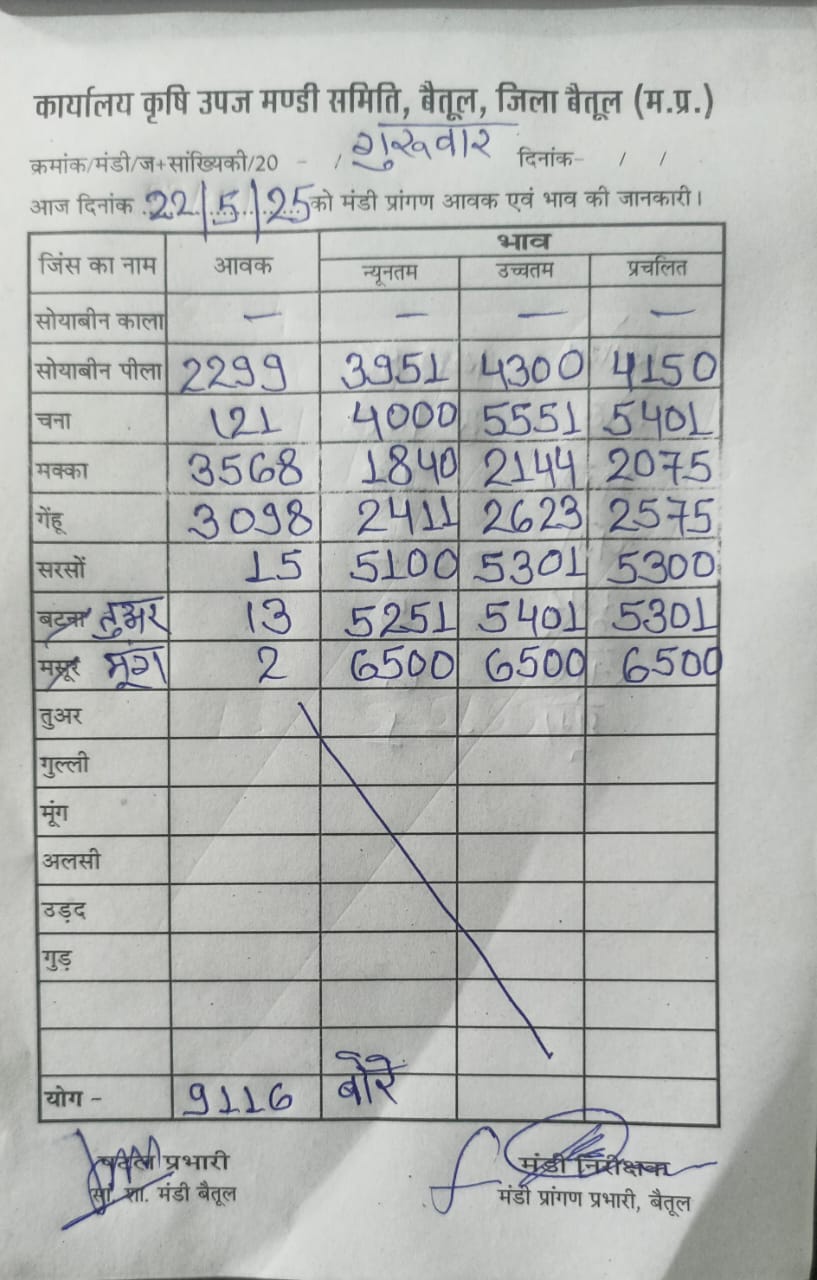 कार्यालय कृषि उपज मण्डी समिति, बैतूल, जिला बैतूल (म.प्र.)
क्रमांक/मंडी/ज+सांख्यिकी/20 - / गुरूवार दिनांक- / /
आज दिनांक 22/5/25 को मंडी प्रांगण आवक एवं भाव की जानकारी।
जिंस का नाम आवक भाव
न्यूनतम उच्चतम प्रचलित
सोयाबीन काला — — — —
सोयाबीन पीला 2299 3951 4300 4150
चना 121 4000 5551 5401
मक्का 3568 1840 2144 2075
गेंहू 3098 2411 2623 2575
सरसों 15 5100 5301 5300
बटरा तुअर 13 5251 5401 5301
मसूर मूंग 2 6500 6500 6500
तुअर
गुल्ली
मूंग
अलसी
उड़द
गुड़
योग - 9116 बोरे
प्रभारी मंडी निरीक्षक
सां. शा. मंडी बैतूल मंडी प्रांगण प्रभारी, बैतूल